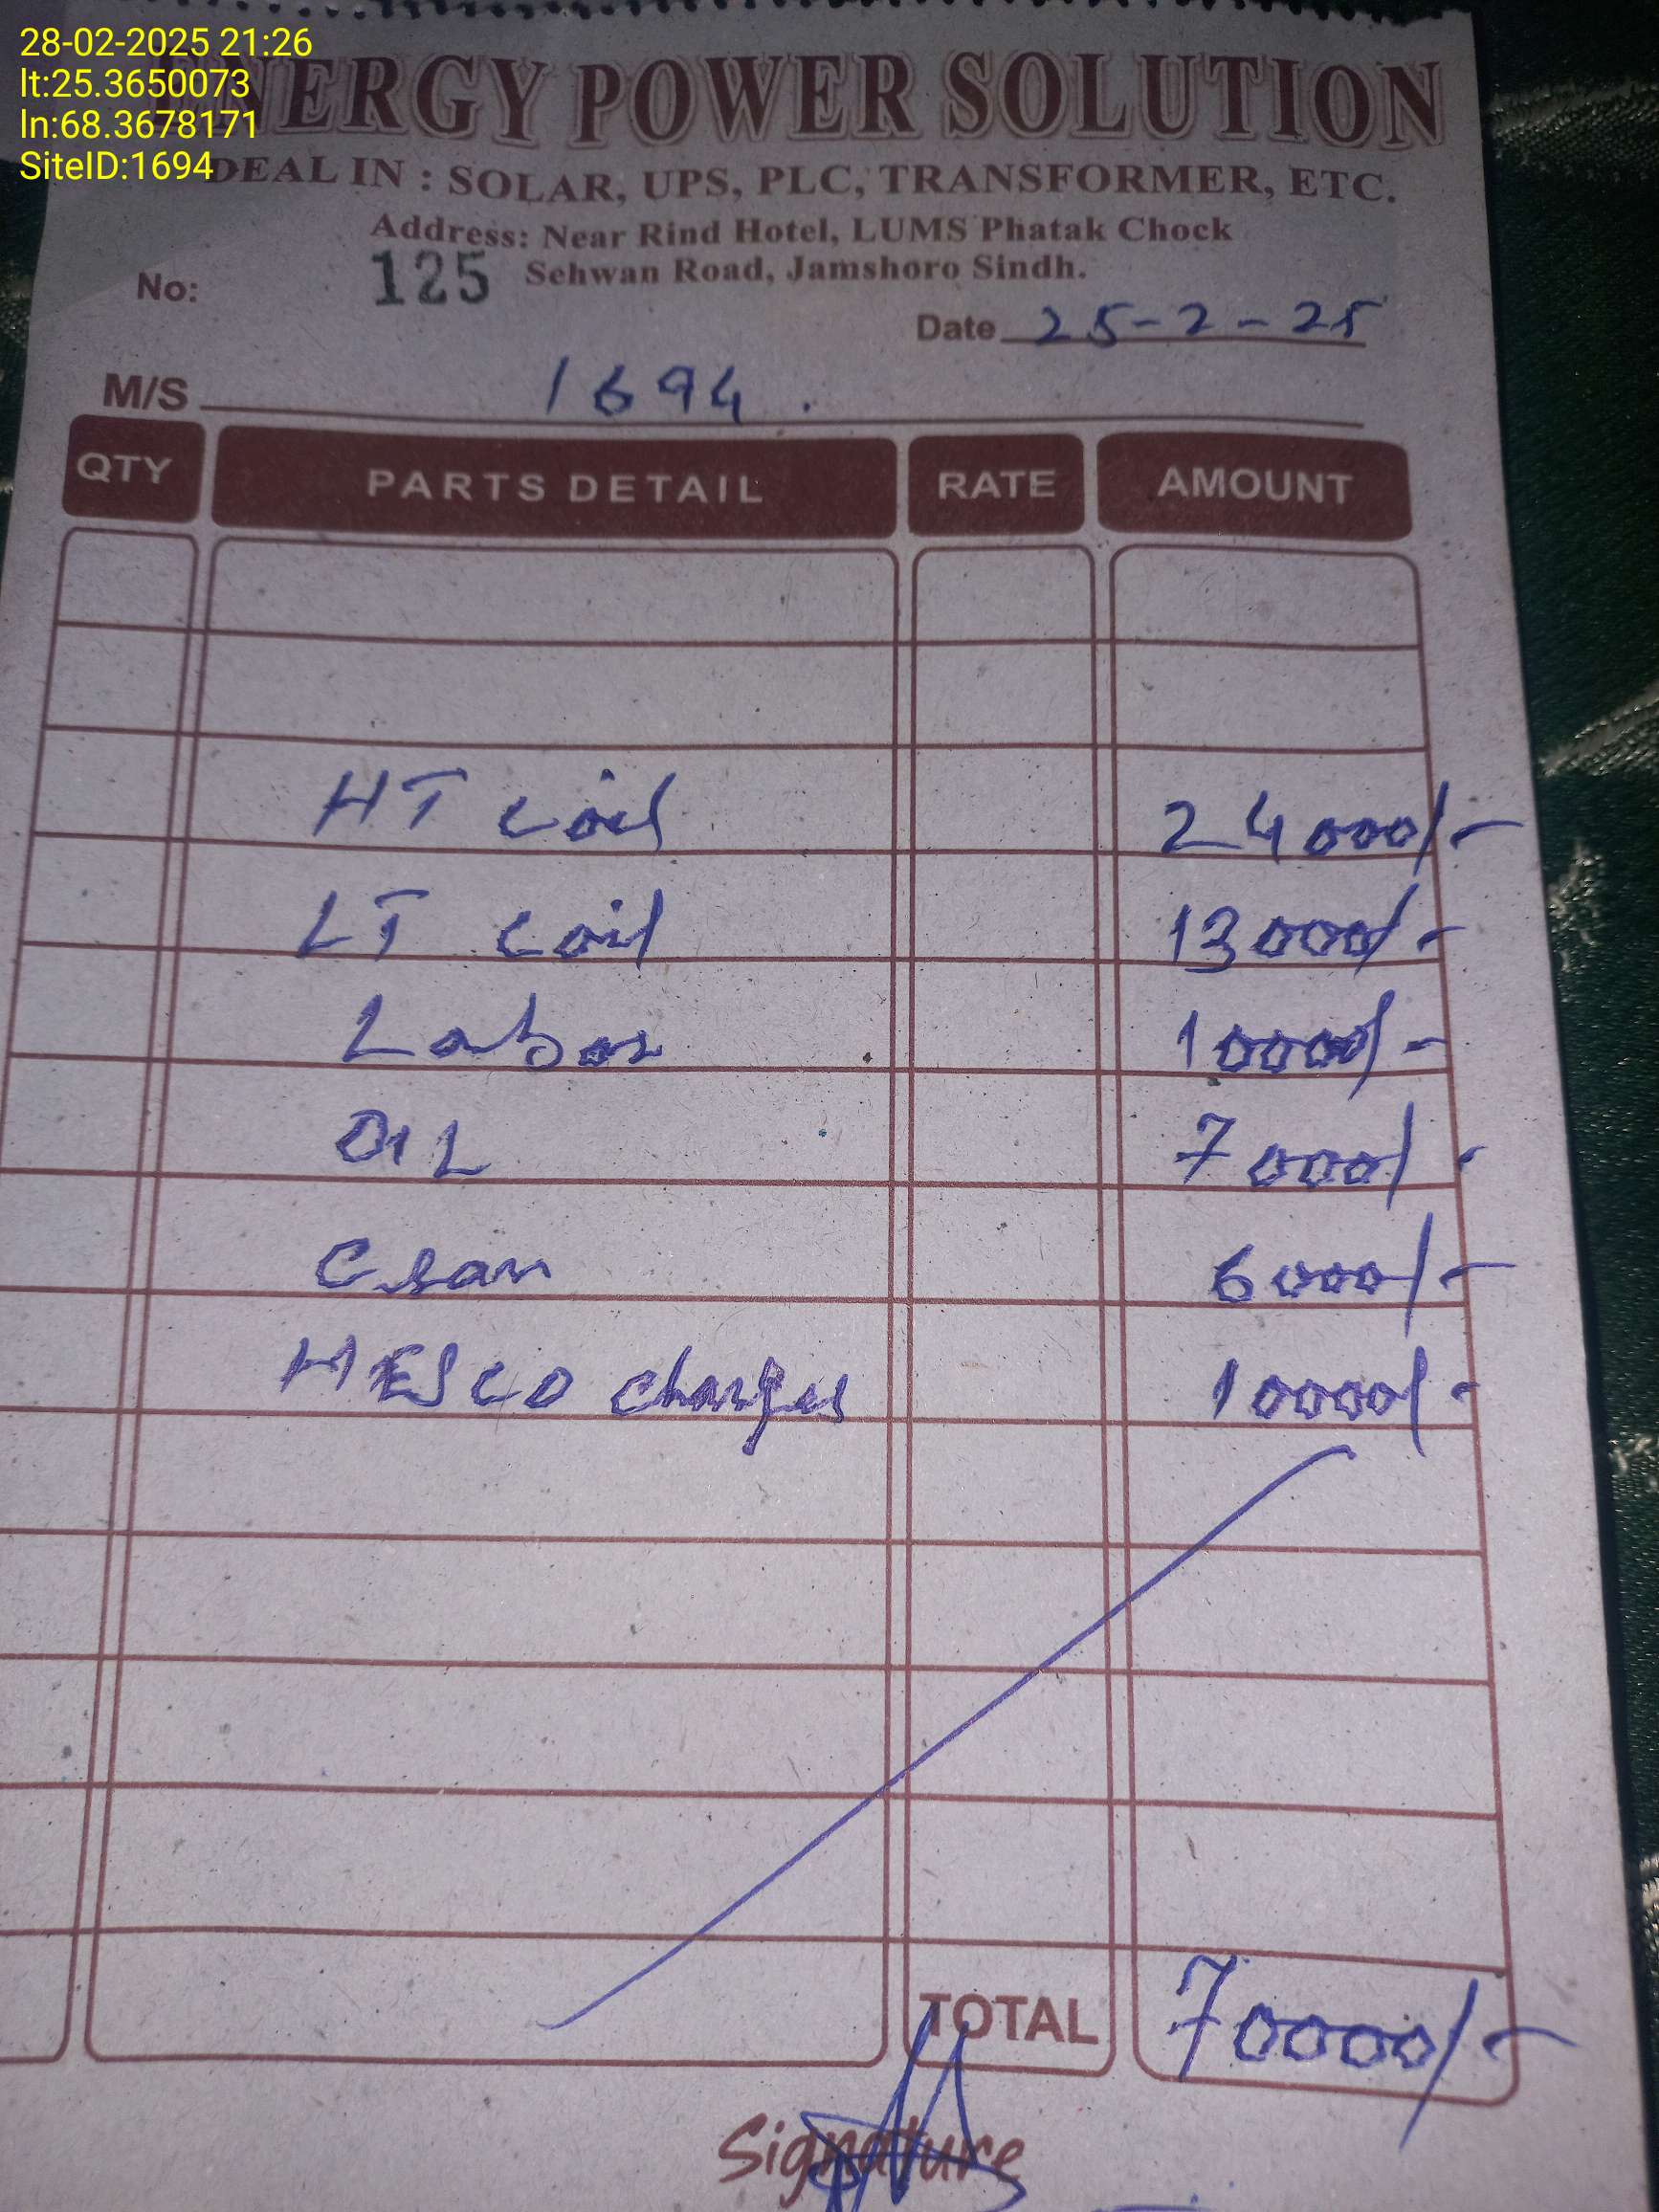 28-02-2025 21:26
lt:25.3650073
ln:68.3678171
SiteID:1694
ENERGY POWER SOLUTION
DEAL IN : SOLAR, UPS, PLC, TRANSFORMER, ETC.
Address: Near Rind Hotel, LUMS Phatak Chock
Sehwan Road, Jamshoro Sindh.
No: 125
Date 25-2-25
M/S 1694.
QTY PARTS DETAIL RATE AMOUNT
HT coil 24000/-
LT coil 13000/-
Labor 10000/-
OIL 7000/-
Cran 6000/-
HESCO charges 10000/-
TOTAL 70000/-
Signature